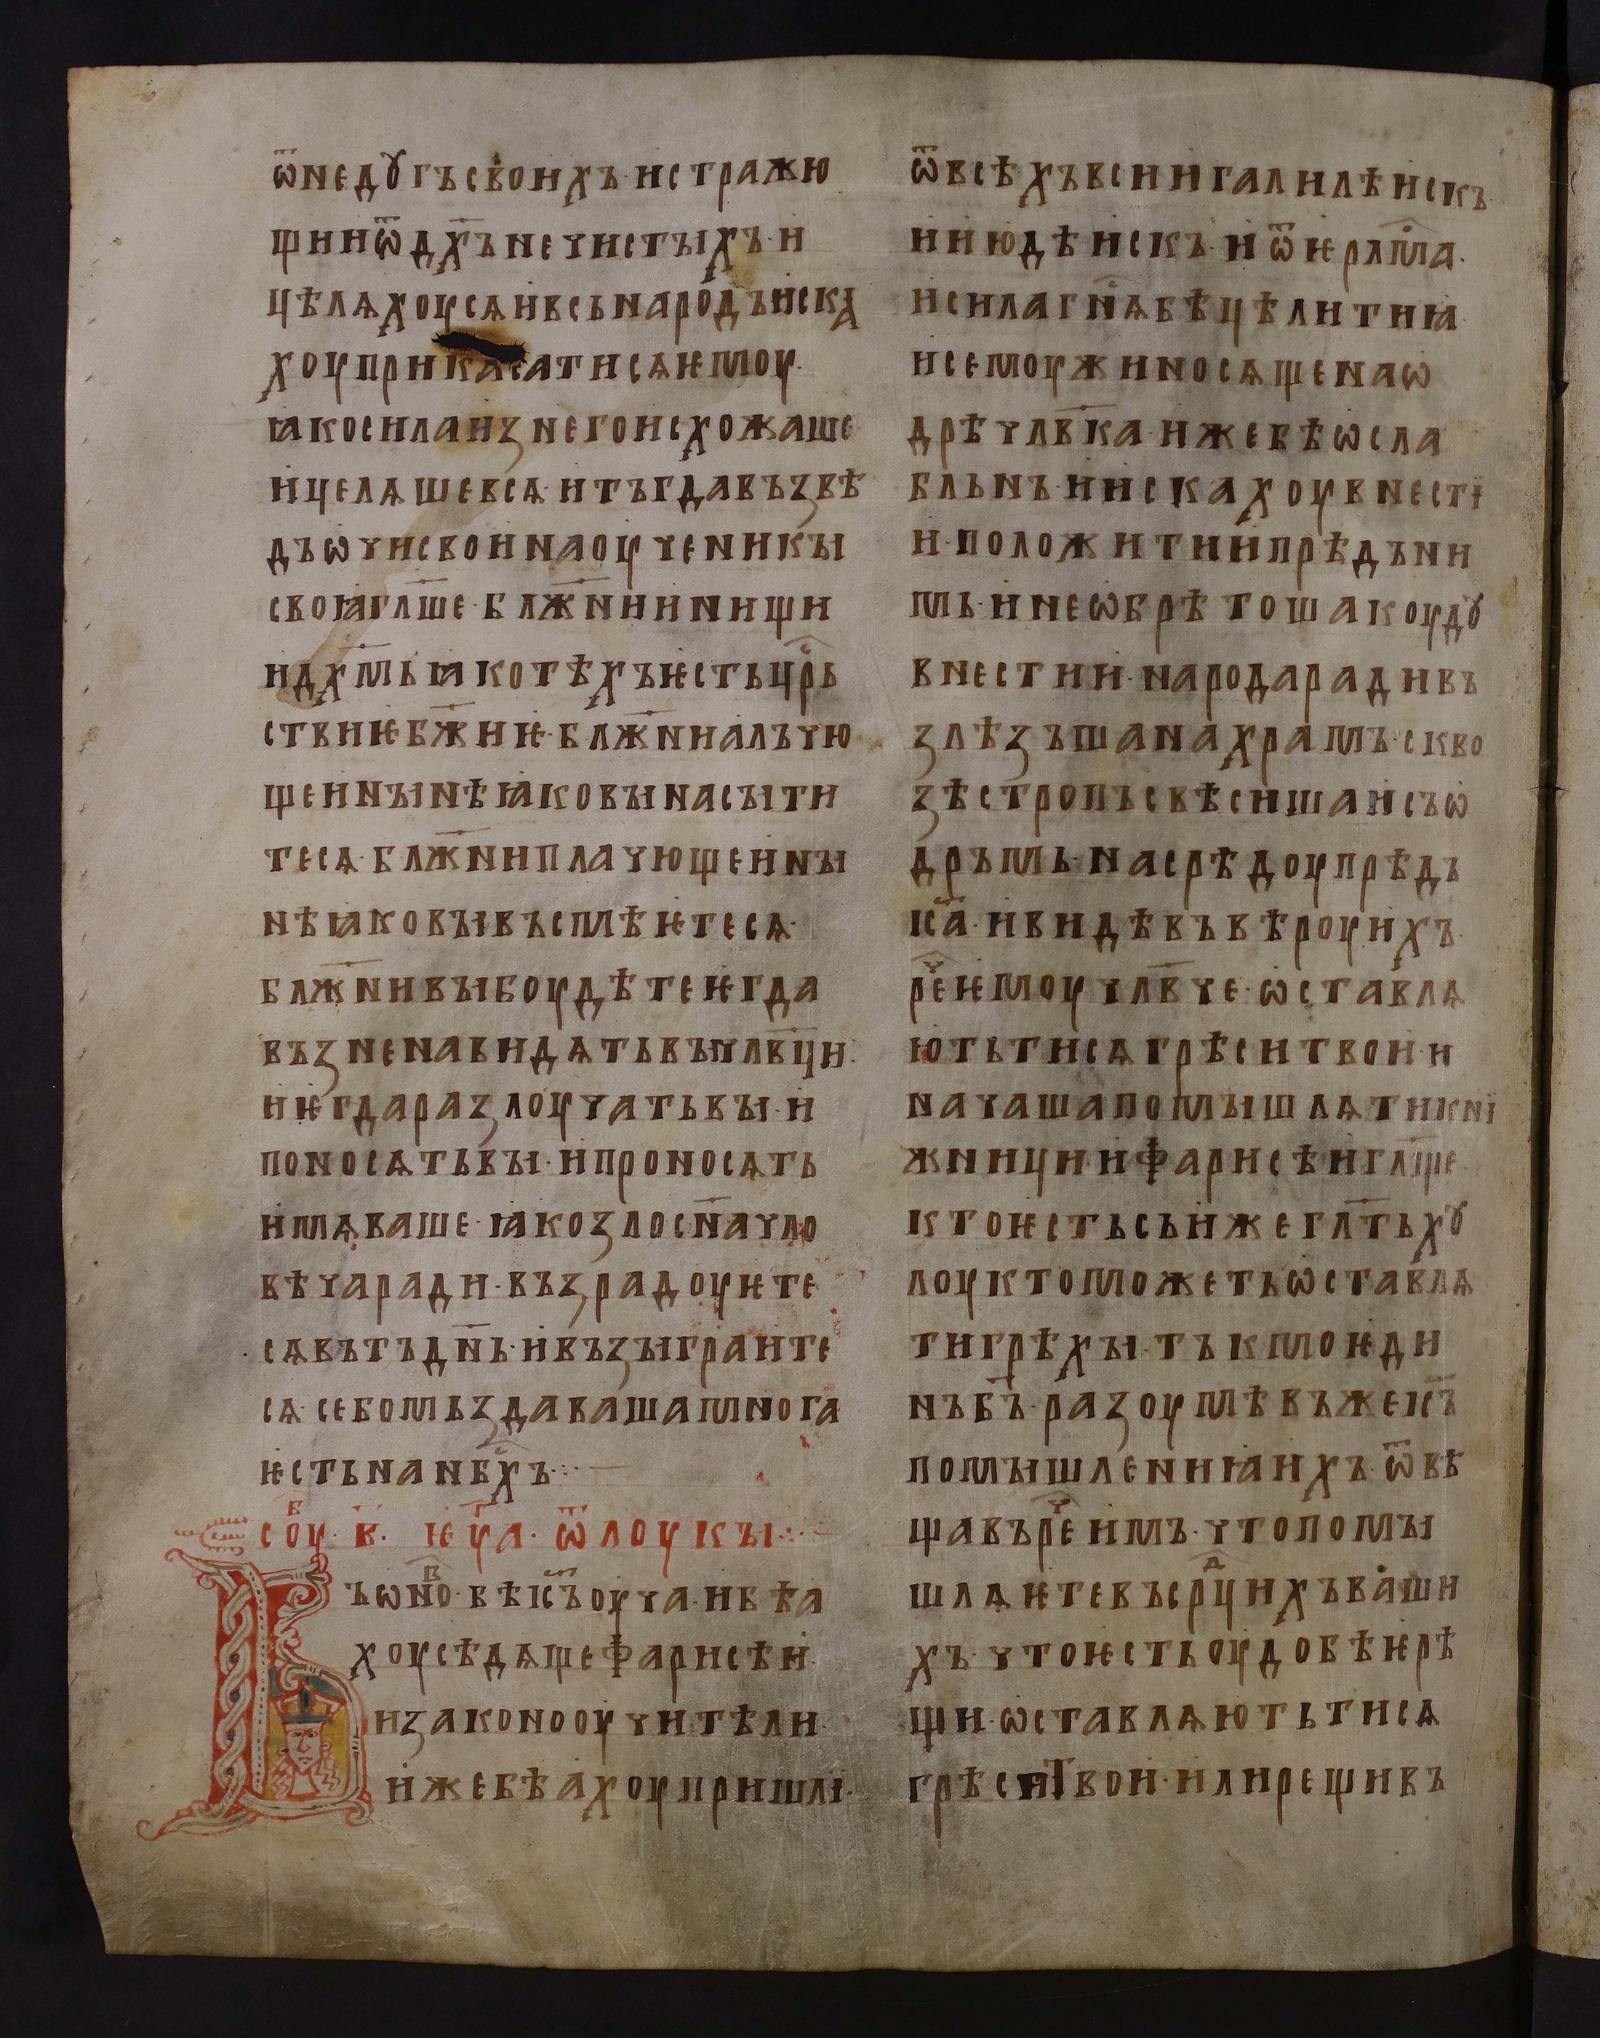 ѿнедꙋгъсвоихъ·истражю
щииѿдх҃ънечистыхъ·и
цѣлѧхоусѧивсьнародъиска
хоуприкасатисѧѥмоу·
ꙗкосилаизнегоисхожаше
ицелѧшевсѧ·итъгдавъзвѣ
дъѡчисвоинаоученикы
своꙗгл҃ше·блж҃нииници
идх҃мьꙗкотѣхъѥстьцр҃ь
ствиѥбж҃иѥ·блж҃ниалъчю
щеинынѣꙗковынасыти
тесѧ·блж҃ниплачющеины
нѣꙗковывъсмѣѥтесѧ·
блж҃нивыбоудѣтеѥгда
възненавидѧтьвъічлв҃ци·
иѥгдаразлоучатьвы·и
поносѧтьвы·ипроносѧть
имѧваше·ꙗкозлосн҃ачло
вѣчаради·възрадоуѥте
сѧвътъдн҃ь·ивъзыграите
сѧ·себомьздавашамнога
ѥстьнанб҃хъ·:·
соу·в҃·ѥуа·ѿлоукы·:·
ъѡно·бѣіс҃ъоуча·ибѣа
хоусѣдѧщефарисѣи·
изаконооучитѣли·
ижебѣахоупришлі·
ѿвсѣхъвсиигалилѣискъ
июдѣискъ·иѿѥрлм҃а·
исилагн҃ѧбѣцѣлитиꙗ
исемоужиносѧщенаѡ
дрѣчлв҃ка·ижебѣѡсла
бльнъ·иискахоувнесті
и·положитиипрѣдъни
мь·инеѡбрѣтошакоудꙋ
внестии·народарадивъ
злѣзъшанахрамъ·скво
зѣстропъсвѣсишаисъѡ
дръмь·насрѣдоупрѣдъ
іс҃а·ивидѣвъвѣроуихъ·
реч҃ѥмоучлв҃че·ѡставлѧ
ютьтисѧгрѣситвои·и
начашапомышлѧтикні
жиициифарисѣигл҃ще
ктоѥстьсьижегл҃тьхꙋ
лоуктоможетьѡставлѧ
тигрѣхы·тъкмоѥди
нъб҃ъ·разоумѣвъжеіс҃ъ
помышлениꙗихъ·ѿвѣ
щавъреч҃имъ·чтопомы
шлѧѥтевъсрд҃цихъваши
хъ·чтоѥстьоудобѣѥрѣ
щи·ѡставлѧютьтисѧ
грѣситвои·илирещивъ